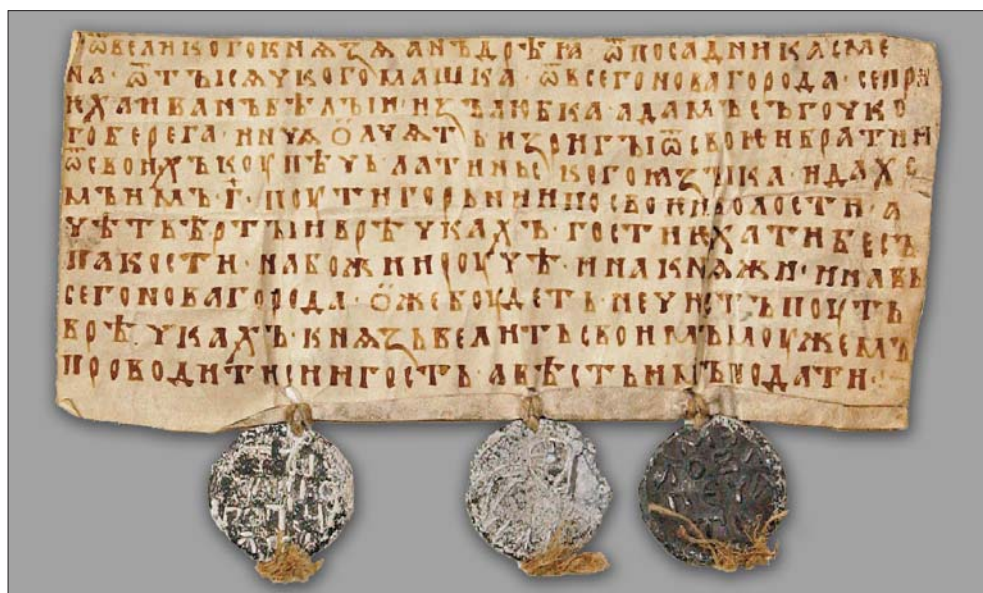 ѿвеликогокнѧзѧанъдрѣꙗ ѿпосадникасме
на · ѿтꙑсѧцкогомашка · ѿвсегоновагорода · сепри
ѥхаиванъбѣлꙑи · изълюбка · адамъсъгоцко
гоберега · инцѧ ѻлцѧтъизъригꙑѿсвоѥибратии
ѿсвоихъкоупѣць латиньскогоꙗзꙑка · идахо
мъимъ · г҃ · поутигорьниипосвоѥиволости · а
цѣтвьртꙑиврѣцкахъ · гостиѥхатибесъ
пакости · набожиироуцѣ · инакнѧжи · инавь
сегоновагорода · ѻжебоудеть · нецистъпоуть
врѣцкахъ · кнѧзьвелитьсвоимъмоужемъ
проводитисиигость · авѣстьимъподати ·